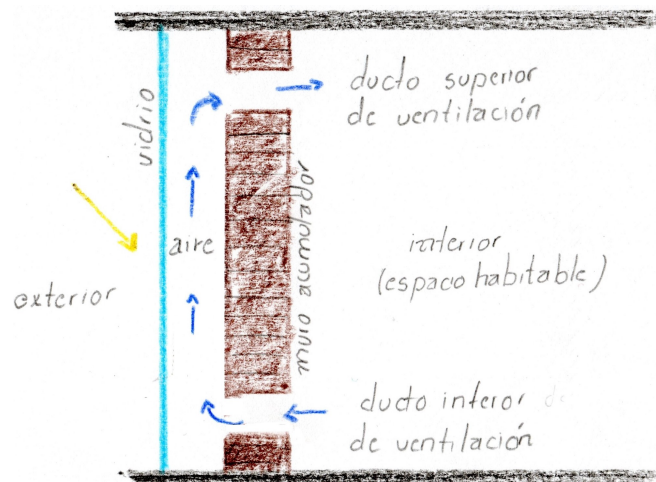 ducto superior
de ventilación
vidrio
muro acumulador
aire
interior
(espacio habitable)
exterior
ducto inferior de
de ventilación